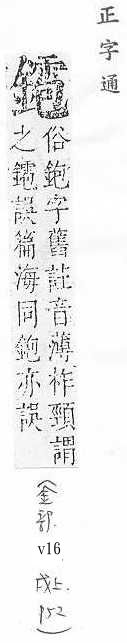 正字通
鑉
俗鉋字舊註音薄祚頸謂
之鑉誤篇海同鉋亦誤
(金部.
v16
戌上.